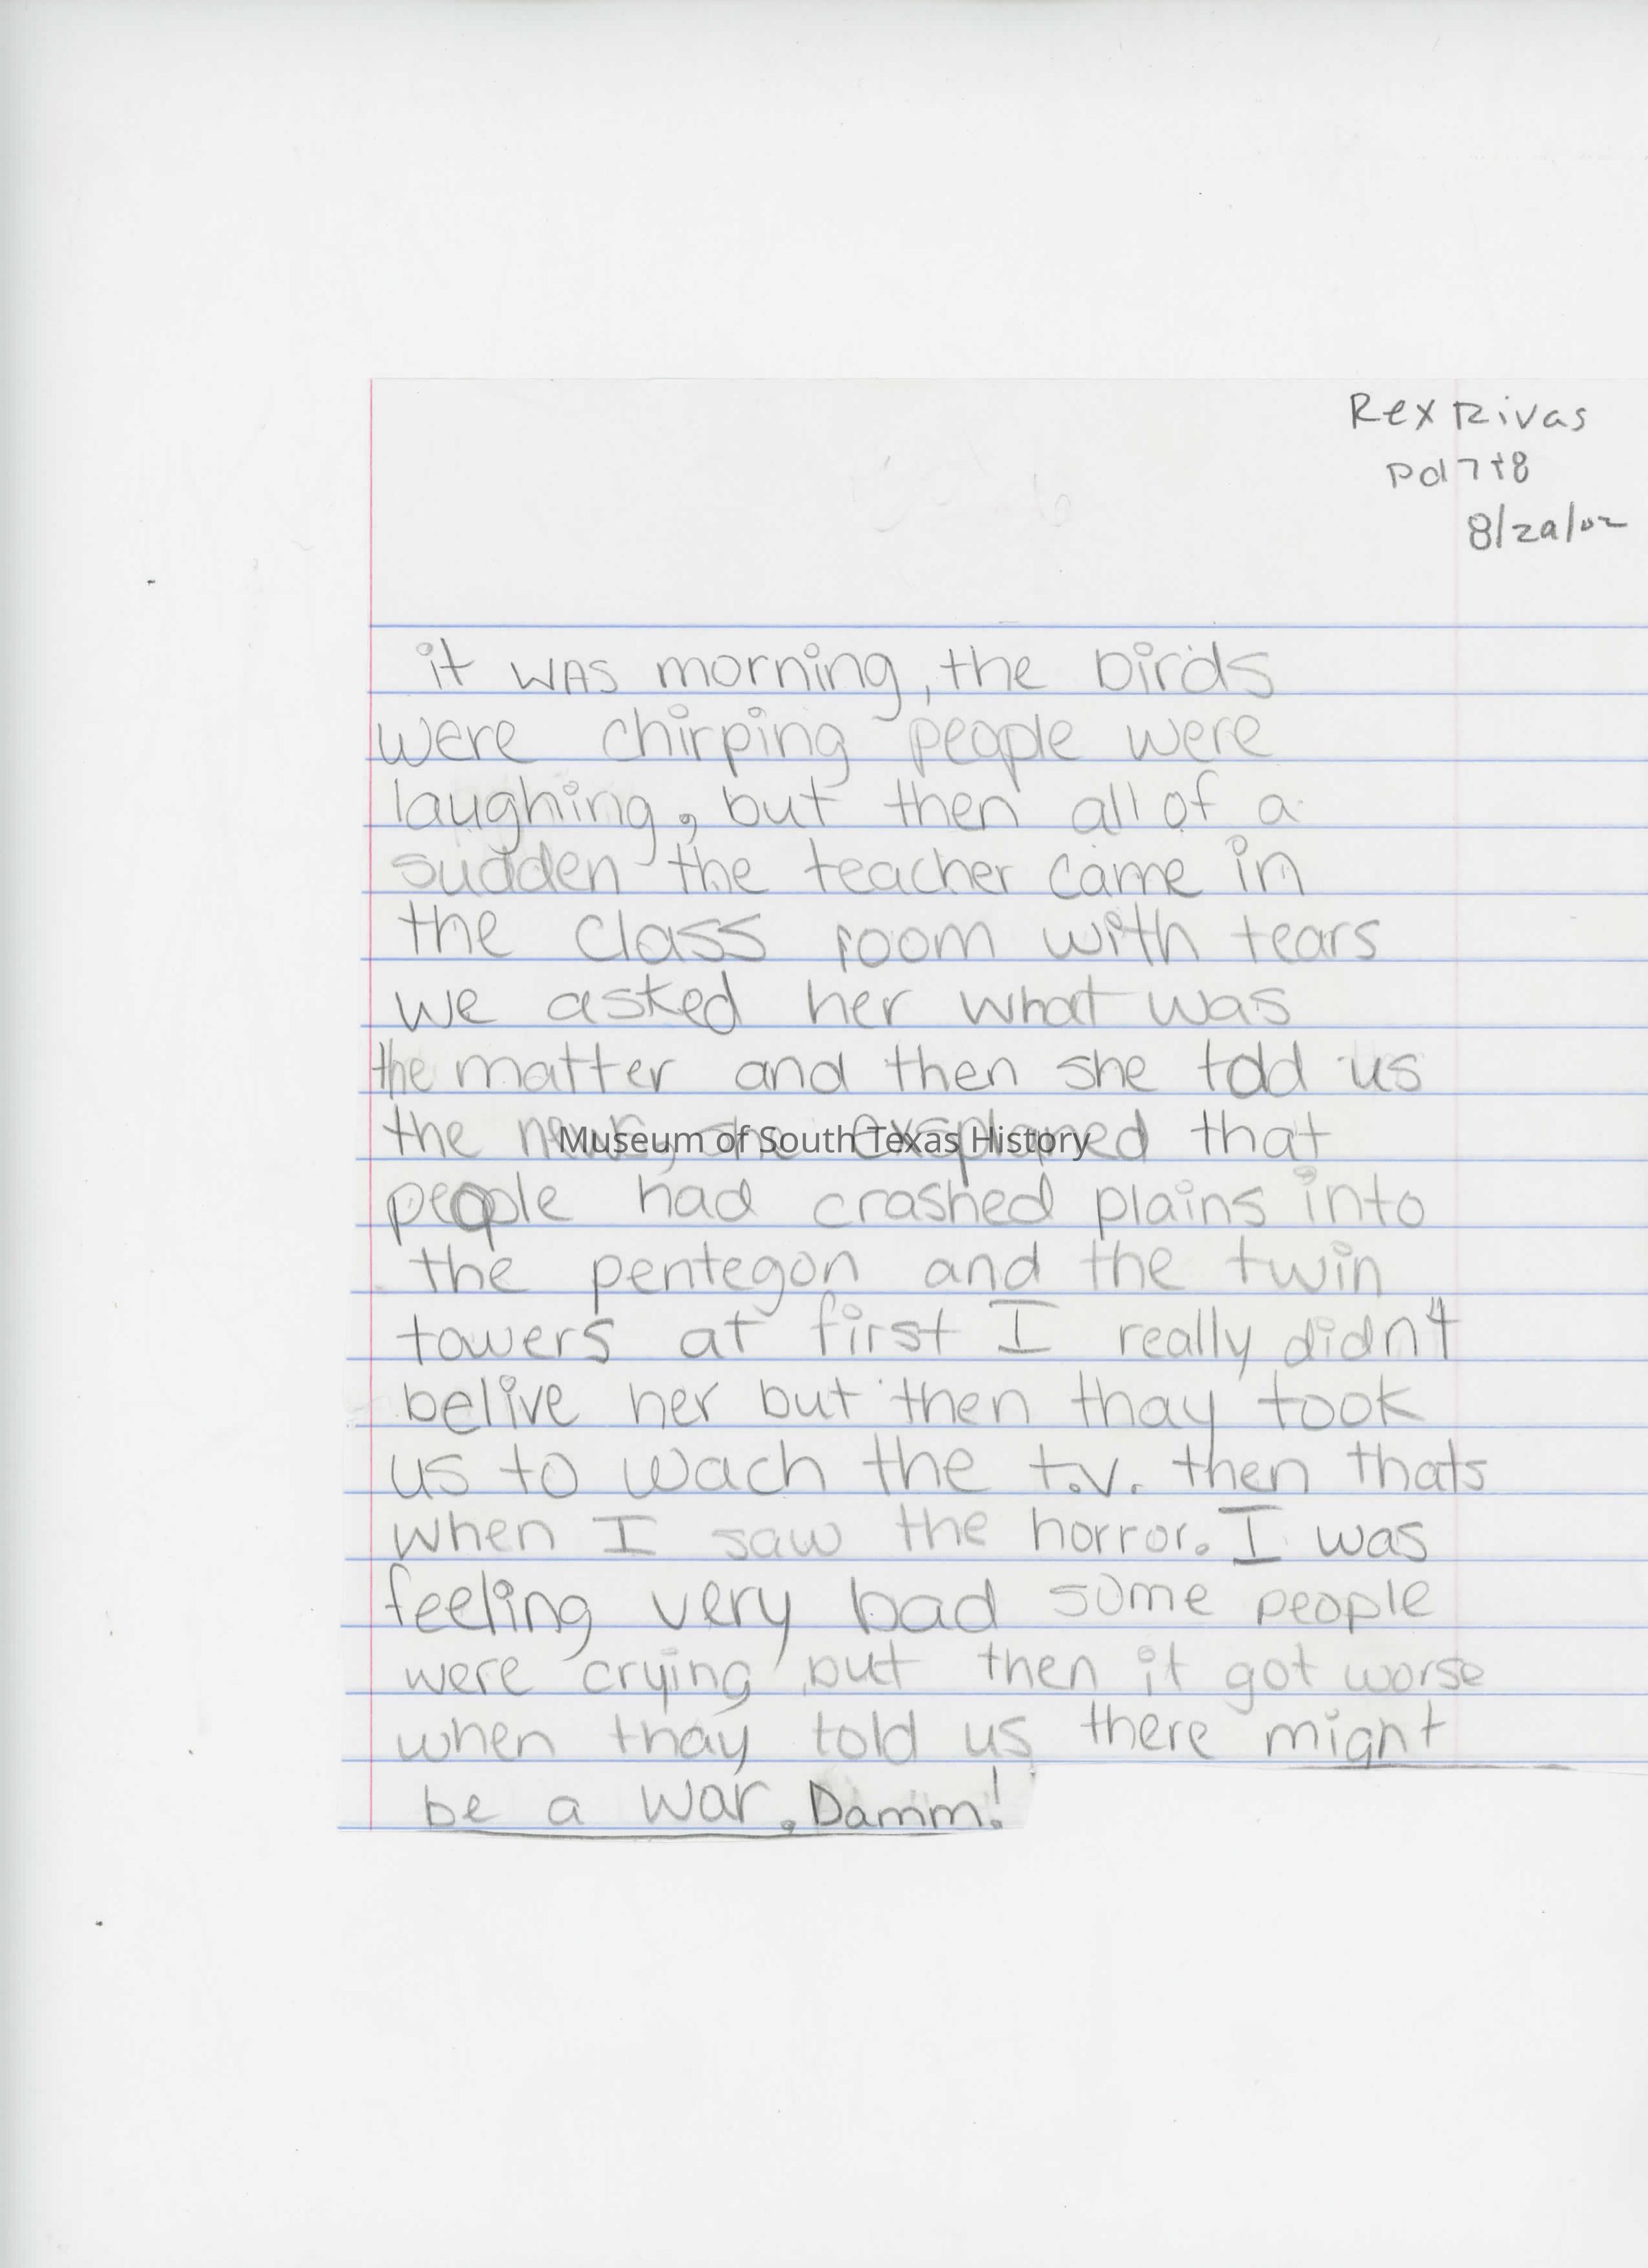 Rex Rivas
Pd 7+8
8/29/02
it WAS morning, the birds
were chirping people were
laughing, but then all of a
sudden the teacher came in
the class room with tears
we asked her what was
the matter and then she told us
the news, she exsplaned that
Museum of South Texas History
people had crashed plains into
the pentegon and the twin
towers at first I really didn't
belive her but then thay took
us to wach the t.v. then thats
when I saw the horror. I was
feeling very bad some people
were crying but then it got worse
when thay told us there might
be a war. Damm!